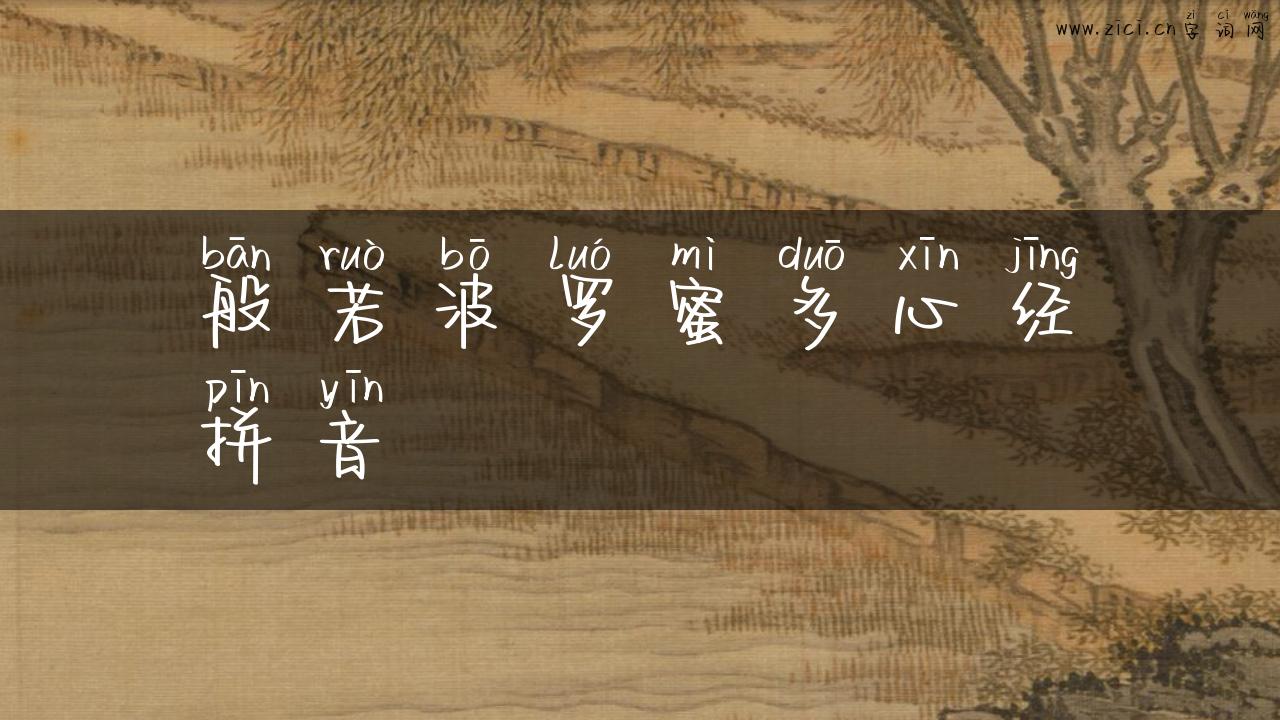 zì cí wǎng
www.zici.cn字词网
bān ruò bō luó mì duō xīn jīng
般若波罗蜜多心经
pīn yīn
拼音